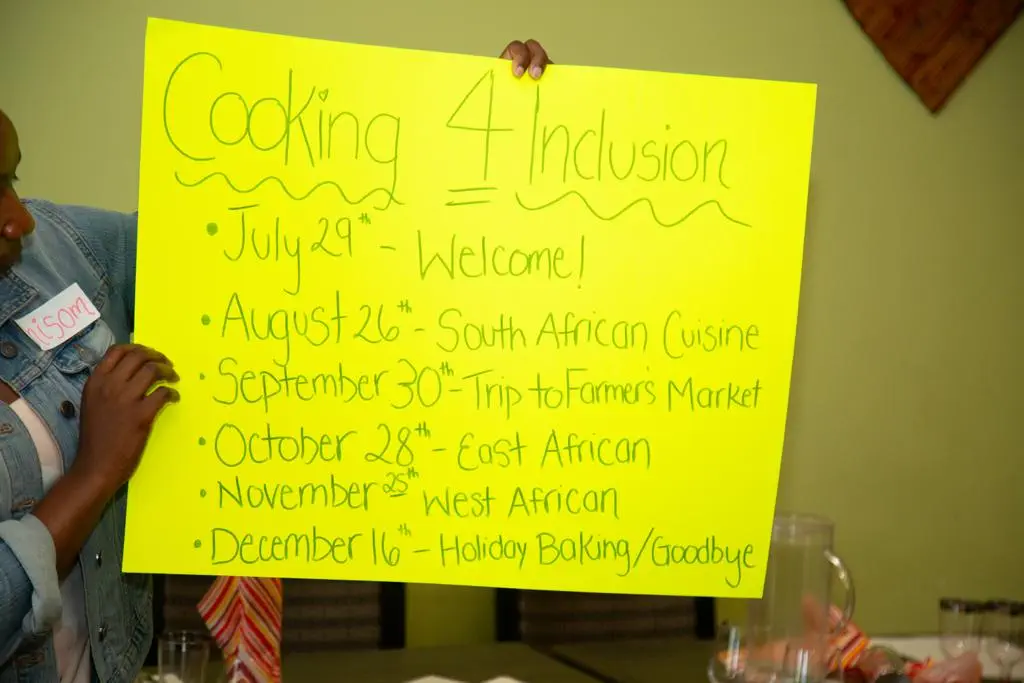 Cooking 4 Inclusion
• July 29th - Welcome!
• August 26th - South African Cuisine
• September 30th - Trip to Farmer's Market
• October 28th - East African
• November 25th West African
• December 16th - Holiday Baking/Goodbye